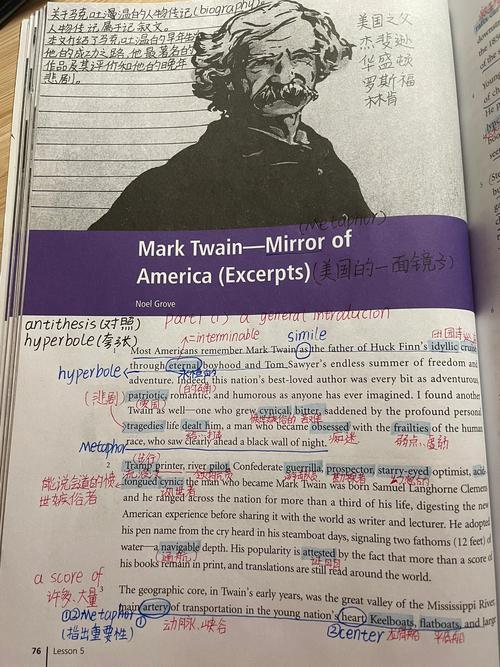 关于马克·吐温的人物传记(biography)
人物传记属于记叙文。
本文介绍了马克·吐温的早年生
他的成功之路,他最著名的
作品及其评价和他的晚年
悲剧。
美国之父
杰斐逊
华盛顿
罗斯福
林肯
(Metaphor)
Mark Twain—Mirror of
America (Excerpts) (美国的一面镜子)
Noel Grove
antithesis(对照)
part (1) a general introduction
hyperbole(夸张)
↑=interminable
simile
1 Most Americans remember Mark Twain as the father of Huck Finn's idyllic cruise
hyperbole
through eternal boyhood and Tom Sawyer's endless summer of freedom and
永恒的
adventure. Indeed, this nation's best-loved author was every bit as adventurous,
patriotic, romantic, and humorous as anyone has ever imagined. I found another
(悲剧)
Twain as well—one who grew cynical, bitter, saddened by the profound personal
tragedies life dealt him, a man who became obsessed with the frailties of the human
race, who saw clearly ahead a black wall of night.
痴迷
Metaphor
2 Tramp printer, river pilot, Confederate guerrilla, prospector, starry-eyed optimist, acid-
能说会道的愤
世嫉俗者
tongued cynic: the man who became Mark Twain was born Samuel Langhorne Clemens
and he ranged across the nation for more than a third of his life, digesting the new
American experience before sharing it with the world as writer and lecturer. He adopted
his pen name from the cry heard in his steamboat days, signaling two fathoms (12 feet) of
water—a navigable depth. His popularity is attested by the fact that more than a score of
his books remain in print, and translations are still read around the world.
a score of
许多,大量
3 The geographic core, in Twain's early years, was the great valley of the Mississippi River,
①②metaphor
main artery of transportation in the young nation's heart. Keelboats, flatboats, and large
(指出重要性)
①动脉,峡谷
②center
平底船
76 Lesson 5